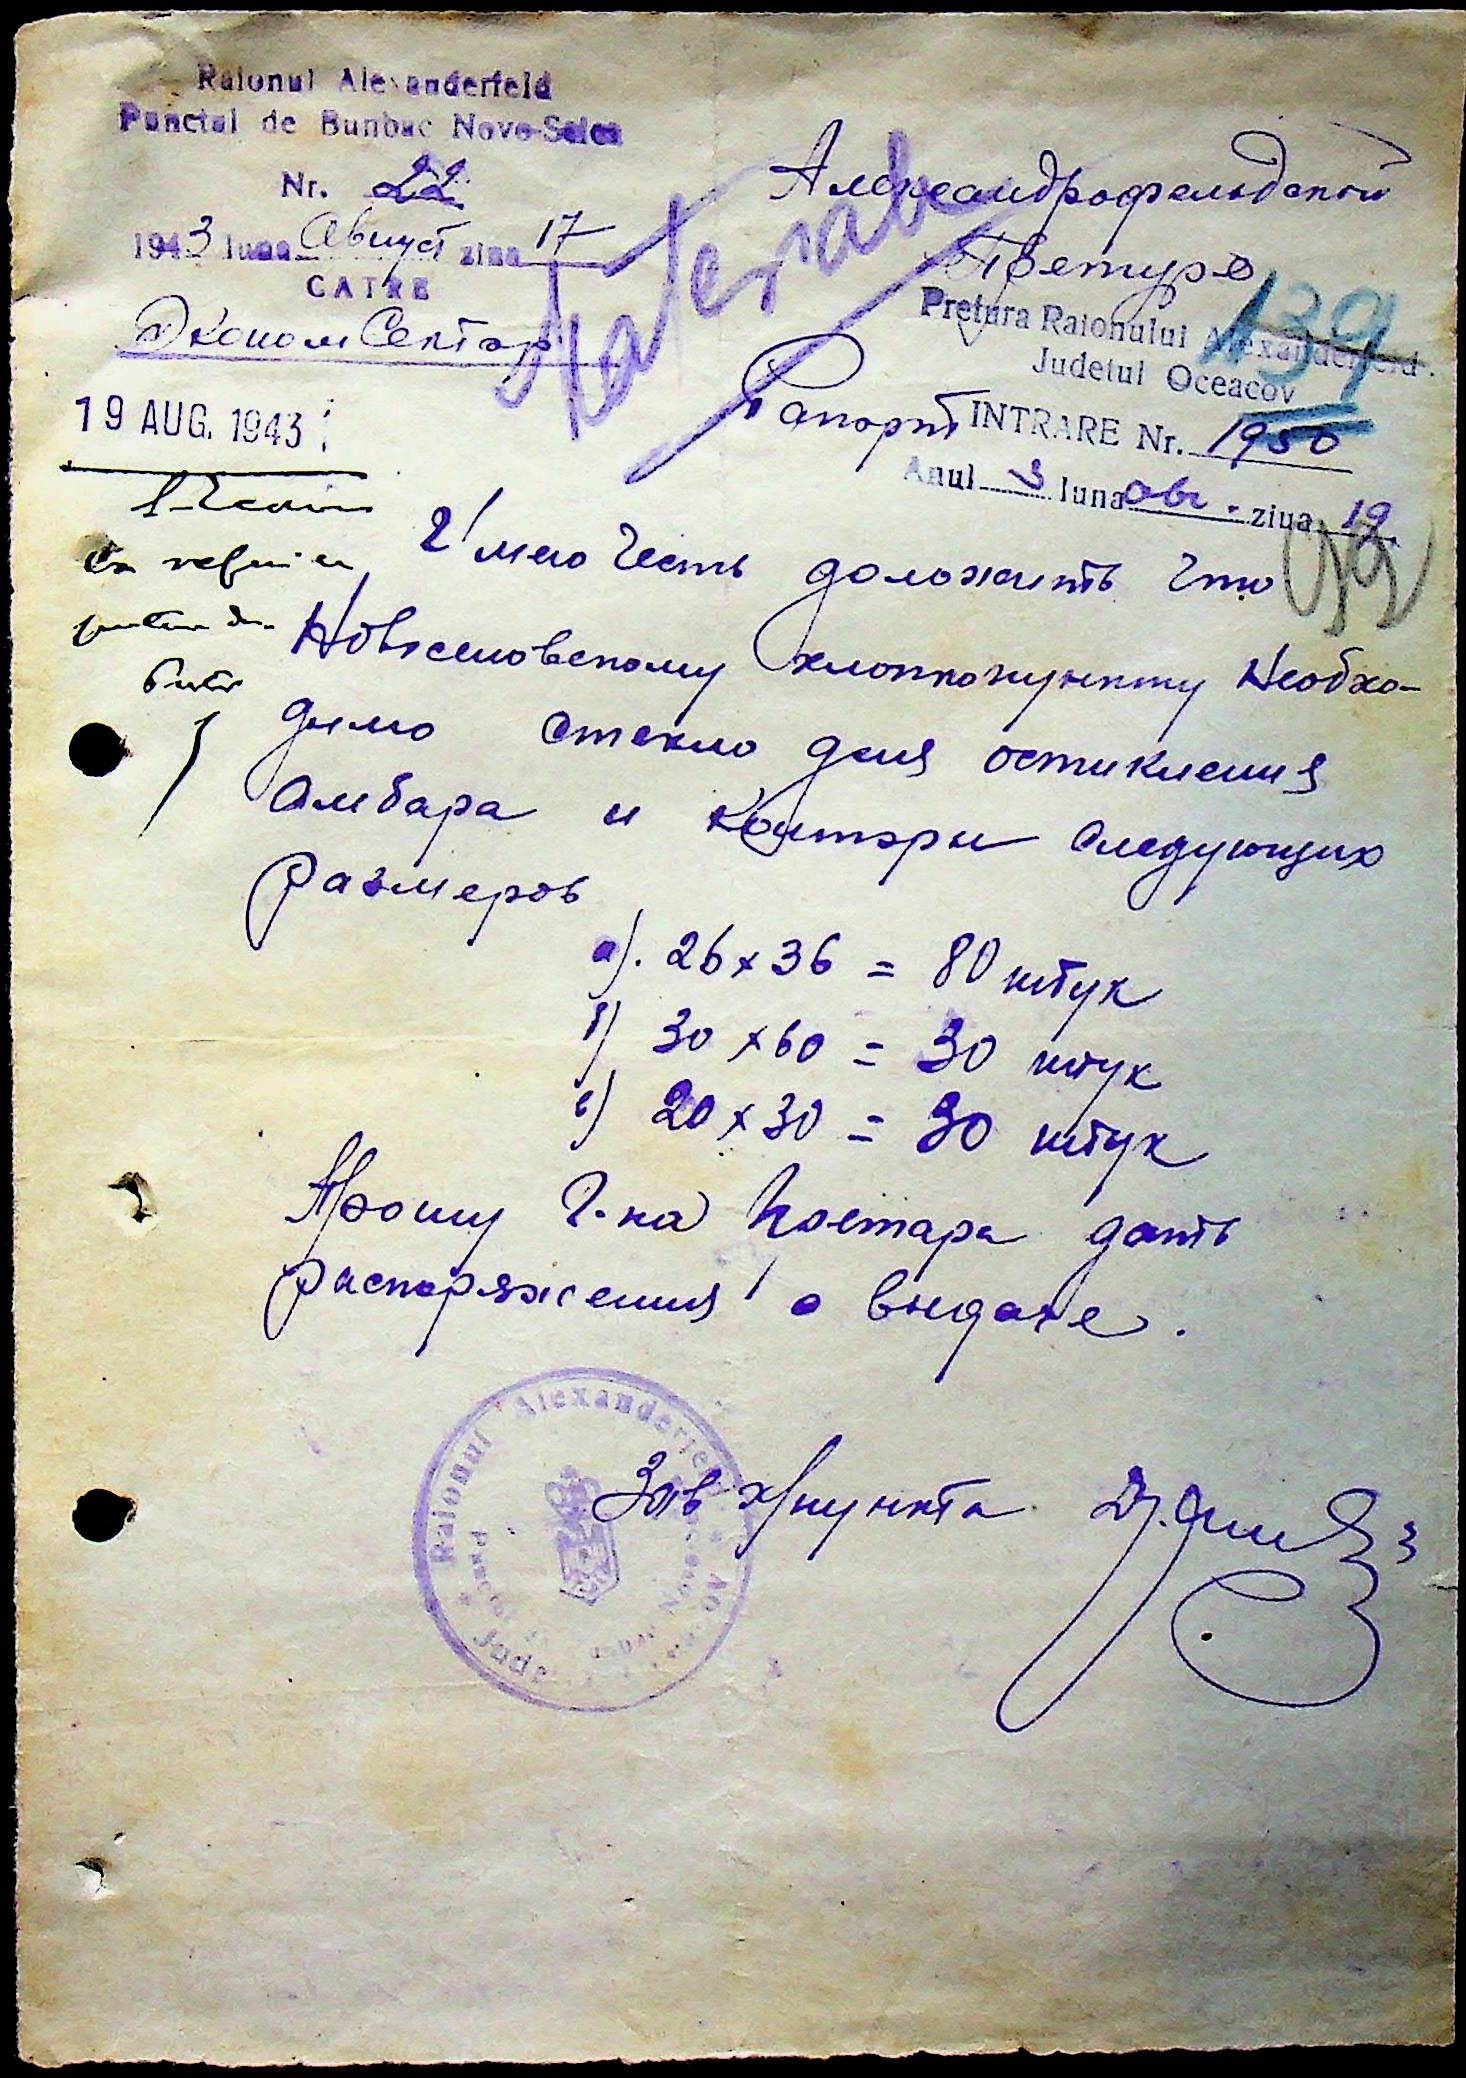 Raionul Alexanderfeld
Punctul de Bunbac Novo-Selca
Nr. 22
1943 luna Август ziua 17
CATRE
Эконом Сектор
19 AUG. 1943
Александрофельдской
Претуре
Pretura Raionului Alexanderfeld
Judetul Oceacov
INTRARE Nr. 1950
Anul 3 luna авг. ziua 19
139
Рапорт
Имею Честь доложить Что
Новоселовскому хлопкопункту Необхо-
димо стекло для остикления
Амбара и Конторы следующих
размеров
а). 26 x 36 = 80 штук
б) 30 x 60 = 30 штук
в) 20 x 30 = 30 штук
Прошу г-на Претара дать
распоряжения о выдаче.
Зав х/пункта
Raionul Alexanderfeld